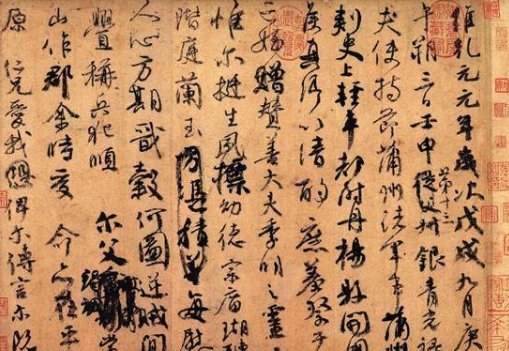 維乾元元年歲次戊戌九月庚
午朔三日壬申第十三從父銀青光祿
夫使持節蒲州諸軍事蒲州
刺史上輕車都尉丹楊縣開國
侯真卿以清酌庶羞祭于
亡姪贈贊善大夫季明之靈
惟爾挺生夙標幼德宗廟瑚
階庭蘭玉方憑積善每慰
人心方期戩穀何圖逆賊間
釁稱兵犯順爾父竭誠常
山作郡余時受命亦在平
原仁兄愛我俾爾傳言爾既